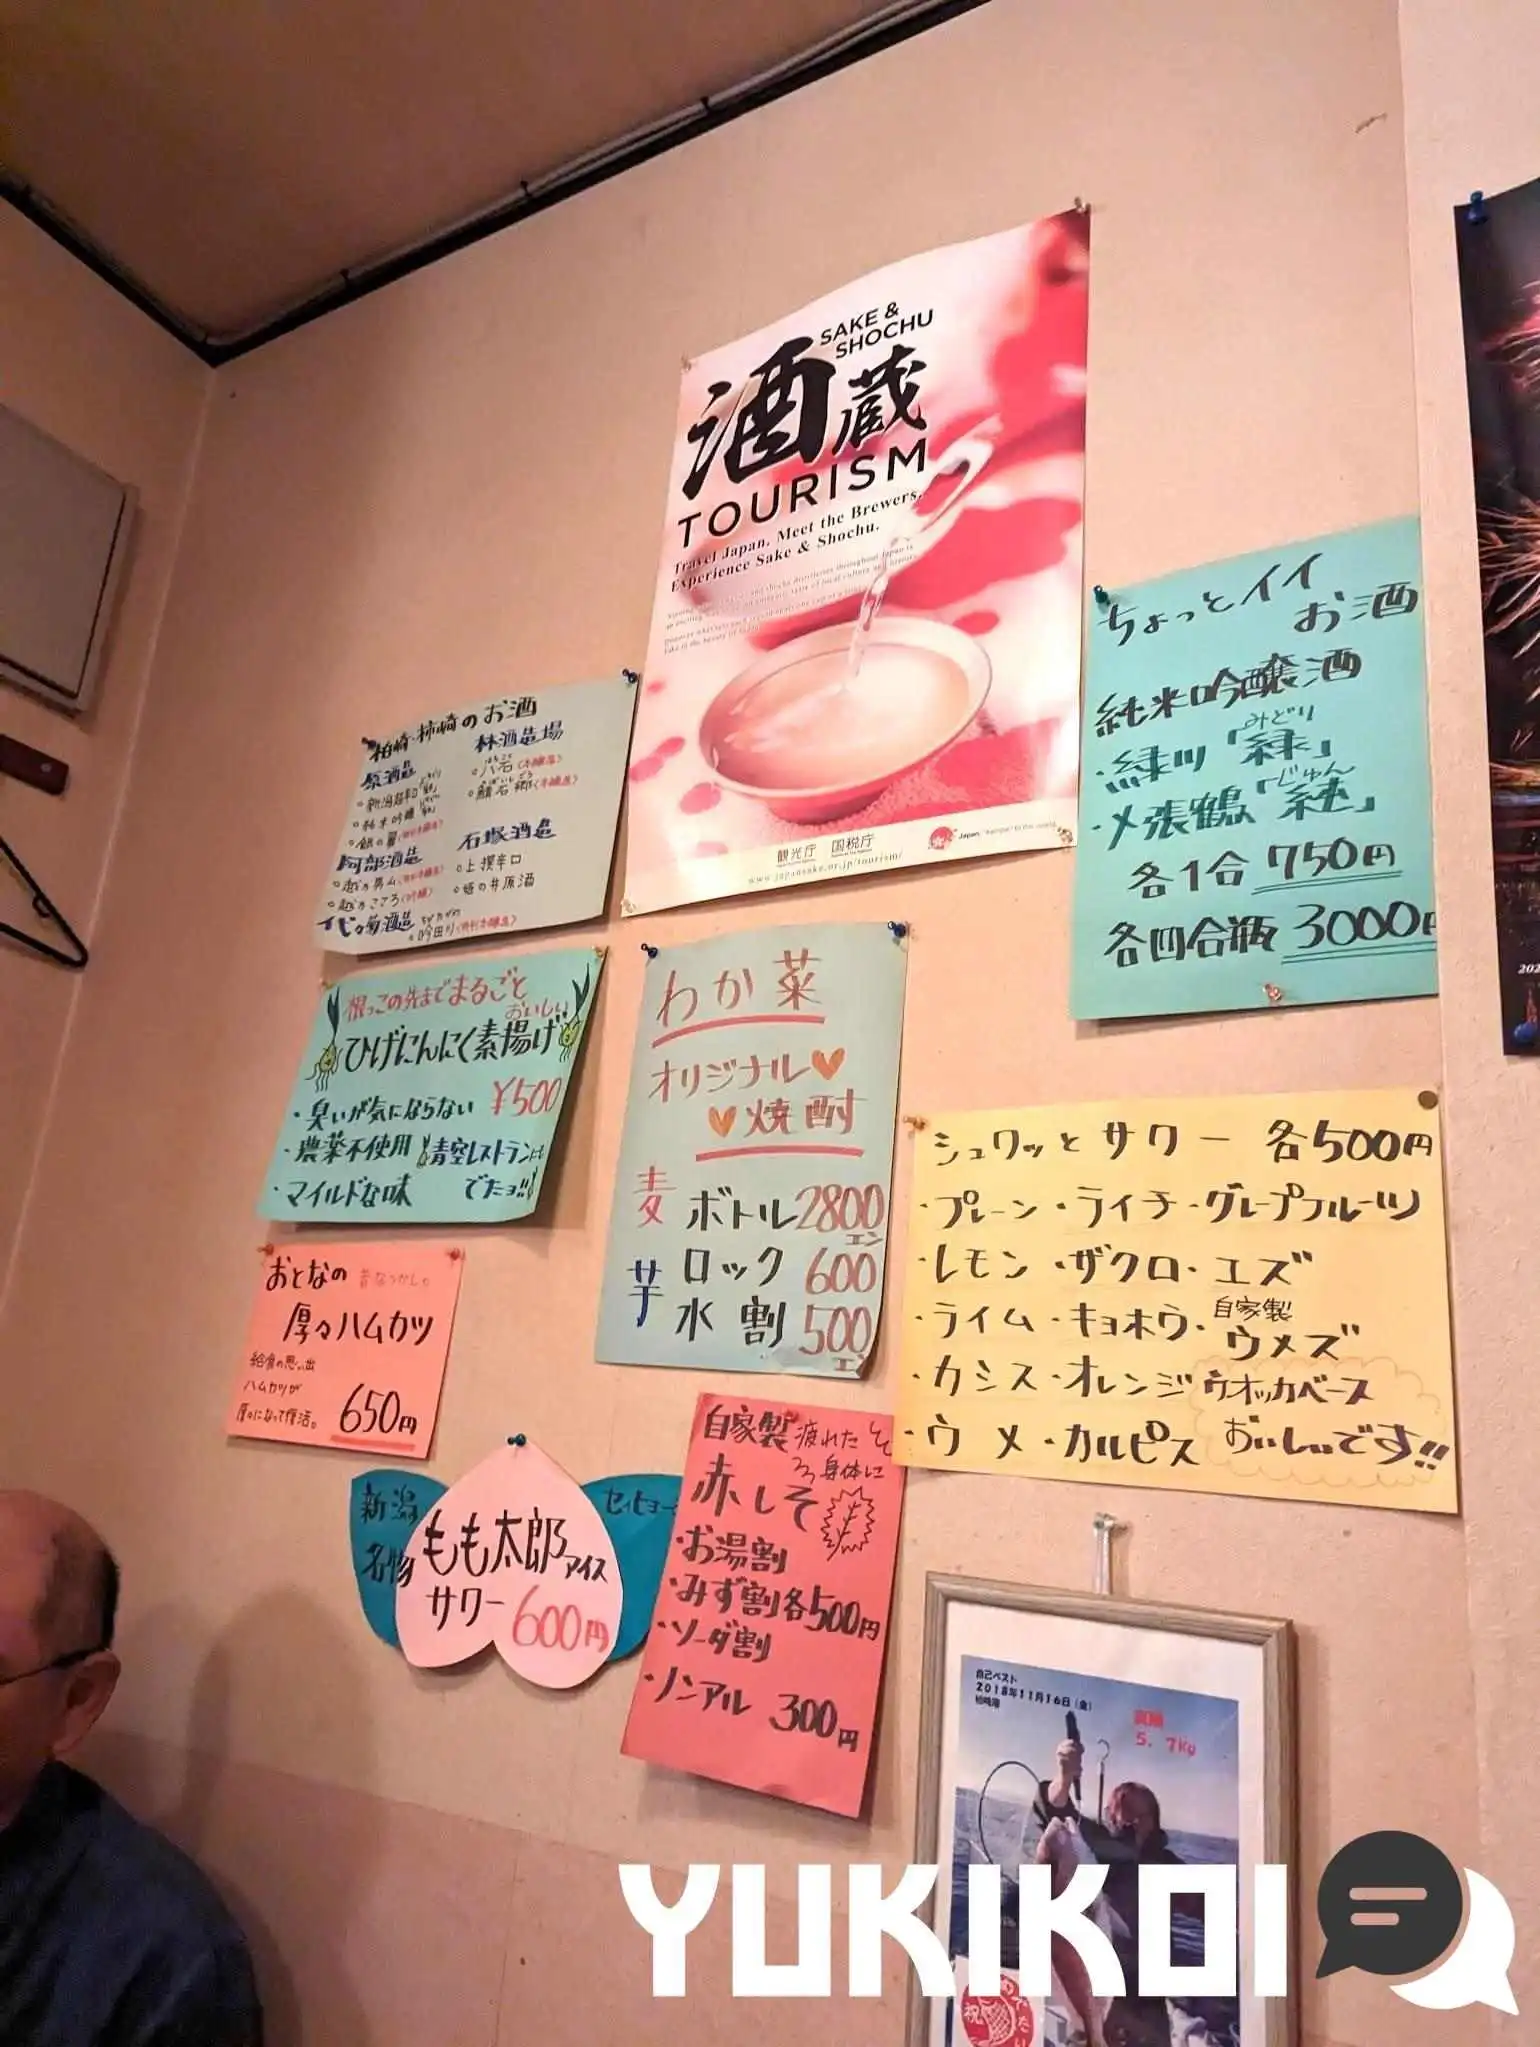 SAKE &
SHOCHU
酒蔵
TOURISM
Travel Japan. Meet the Brewers.
Experience Sake & Shochu.
観光庁 国税庁
www.japansake.or.jp/tourism/
ちょっとイイ
お酒
純米吟醸酒
みどり
・緑川「緑」
じゅん
・〆張鶴「純」
各1合 750円
各四合瓶 3000円
柏崎・柿崎のお酒
原酒造
阿部酒造
・越の男山
・越のこころ(吟醸)
代々菊酒造
・吟田川(特別本醸造)
林酒造場
・八石(本醸造)
・鯖石郷(本醸造)
石塚酒造
・上撰辛口
・姫の井原酒
根っこの先までまるごと
おいしい
ひげにんにく素揚げ
¥500
・臭いが気にならない
・農薬不使用
・マイルドな味
青空レストランにも
でたョ!!
わか菜
オリジナル
焼酎
麦 ボトル2800
エン
芋 ロック 600
水割 500
エン
シュワッとサワー 各500円
・プレーン・ライチ・グレープフルーツ
・レモン・ザクロ・ユズ
・ライム・キョホウ・自家製
ウメズ
・カシス・オレンジ
・ウメ・カルピス
ウオッカベース
おいしいです!!
おとなの 昔なつかし。
厚々ハムカツ
給食の思い出
ハムカツが
厚々になって復活。
650円
新潟
名物
もも太郎アイス
サワー 600円
セイヒョー
自家製
疲れた
身体に
赤しそ
・お湯割
・みず割 各500円
・ソーダ割
・ノンアル 300円
自己ベスト
2018年11月16日(金)
柏崎港
真鯛
5.7Kg
祝
YUKIKOI